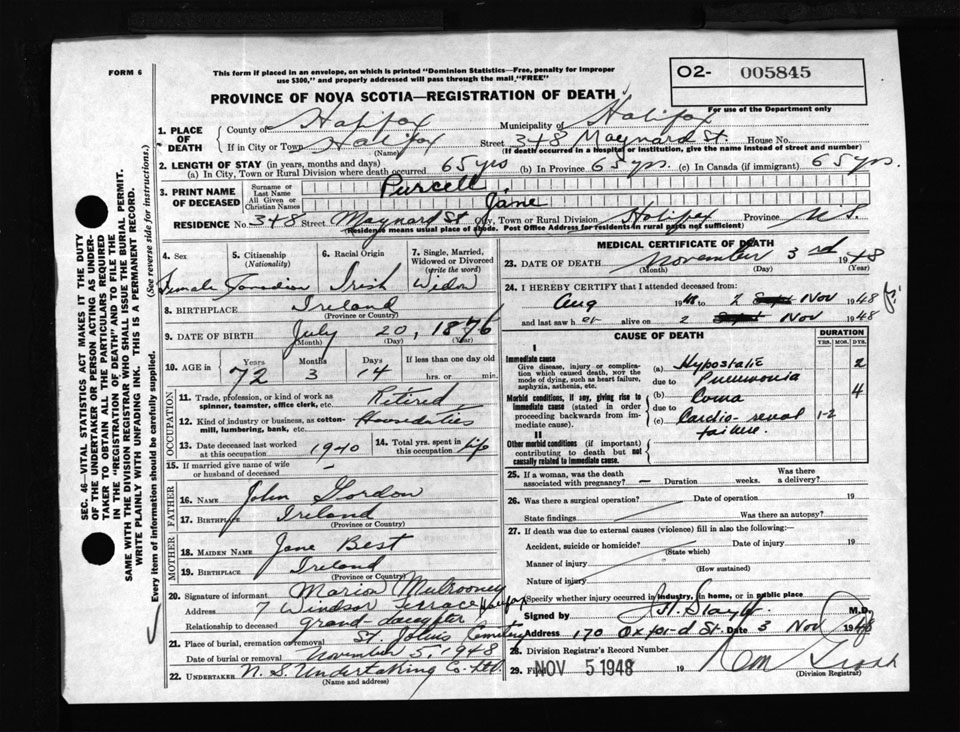 FORM 6
This form if placed in an envelope, on which is printed "Dominion Statistics—Free, penalty for improper
use $300," and properly addressed will pass through the mail "FREE"
O2- 005845
For use of the Department only
PROVINCE OF NOVA SCOTIA—REGISTRATION OF DEATH
1. PLACE OF DEATH
County of Halifax Municipality of Halifax
If in City or Town Halifax Street 348 Maynard St. House No.
(Name) (If death occurred in a hospital or institution, give the name instead of street and number)
2. LENGTH OF STAY (in years, months and days)
(a) In City, Town or Rural Division where death occurred 65 yrs (b) In Province 65 yrs. (c) In Canada (if immigrant) 65 yrs.
3. PRINT NAME OF DECEASED
Surname or Last Name Purcell,
All Given or Christian Names Jane
RESIDENCE No. 348 Street Maynard St City, Town or Rural Division Halifax Province N.S.
Residence means usual place of abode. Post Office Address for residents in rural parts not sufficient)
4. Sex
Female
5. Citizenship
(Nationality)
Canadian
6. Racial Origin
Irish
7. Single, Married,
Widowed or Divorced
(write the word)
Widow
8. BIRTHPLACE Ireland
(Province or Country)
9. DATE OF BIRTH July 20, 1876
(Month) (Day) (Year)
10. AGE in
Years Months Days If less than one day old
72 3 14 hrs. or min.
OCCUPATION
11. Trade, profession, or kind of work as
spinner, teamster, office clerk, etc. Retired
12. Kind of industry or business, as cotton-
mill, lumbering, bank, etc. Housedities
13. Date deceased last worked
at this occupation 1940
14. Total yrs. spent in
this occupation life
15. If married give name of wife
or husband of deceased —
FATHER
16. NAME John Gordon
17. BIRTHPLACE Ireland
(Province or Country)
MOTHER
18. MAIDEN NAME Jane Best
19. BIRTHPLACE Ireland
(Province or Country)
20. Signature of informant Marion Mulrooney
Address 7 Windsor Terrace Halifax
Relationship to deceased grand-daughter
21. Place of burial, cremation or removal St. John's Cemetery
Date of burial or removal November 5, 1948
22. UNDERTAKER N.S. Undertaking Co. Ltd.
(Name and address)
MEDICAL CERTIFICATE OF DEATH
23. DATE OF DEATH November 3rd 1948
(Month) (Day) (Year)
24. I HEREBY CERTIFY that I attended deceased from:
Aug 1948 to 2 Sept Nov 1948
and last saw her alive on 2 Sept Nov 1948
CAUSE OF DEATH
DURATION
YRS. MOS. DYS.
I
Immediate cause
Give disease, injury or complica-
tion which caused death, not the
mode of dying, such as heart failure,
asphyxia, asthenia, etc.
(a) Hypostatic 2
due to Pneumonia
Morbid conditions, if any, giving rise to
immediate cause (stated in order
proceeding backwards from im-
mediate cause).
(b) Coma 4
due to
(c) Cardio-renal 1-2
failure.
II
Other morbid conditions (if important)
contributing to death but not
causally related to immediate cause.
25. If a woman, was the death
associated with pregnancy? — Duration weeks. Was there
a delivery?
26. Was there a surgical operation? Date of operation 19
State findings Was there an autopsy?
27. If death was due to external causes (violence) fill in also the following:—
Accident, suicide or homicide? Date of injury 19
(State which)
Manner of injury
(How sustained)
Nature of injury
Specify whether injury occurred in industry, in home, or in public place
Signed by M.D.
Address 170 Oxford St. Date 3 Nov 1948
28. Division Registrar's Record Number
29. Filed NOV 5 1948 19
(Division Registrar)
SEC. 46—VITAL STATISTICS ACT MAKES IT THE DUTY
OF THE UNDERTAKER OR PERSON ACTING AS UNDER-
TAKER TO OBTAIN ALL THE PARTICULARS REQUIRED
IN THE "REGISTRATION OF DEATH" AND TO FILE THE
SAME WITH THE DIVISION REGISTRAR WHO SHALL ISSUE THE BURIAL PERMIT.
WRITE PLAINLY WITH UNFADING INK. THIS IS A PERMANENT RECORD.
Every item of information should be carefully supplied. (See reverse side for instructions.)